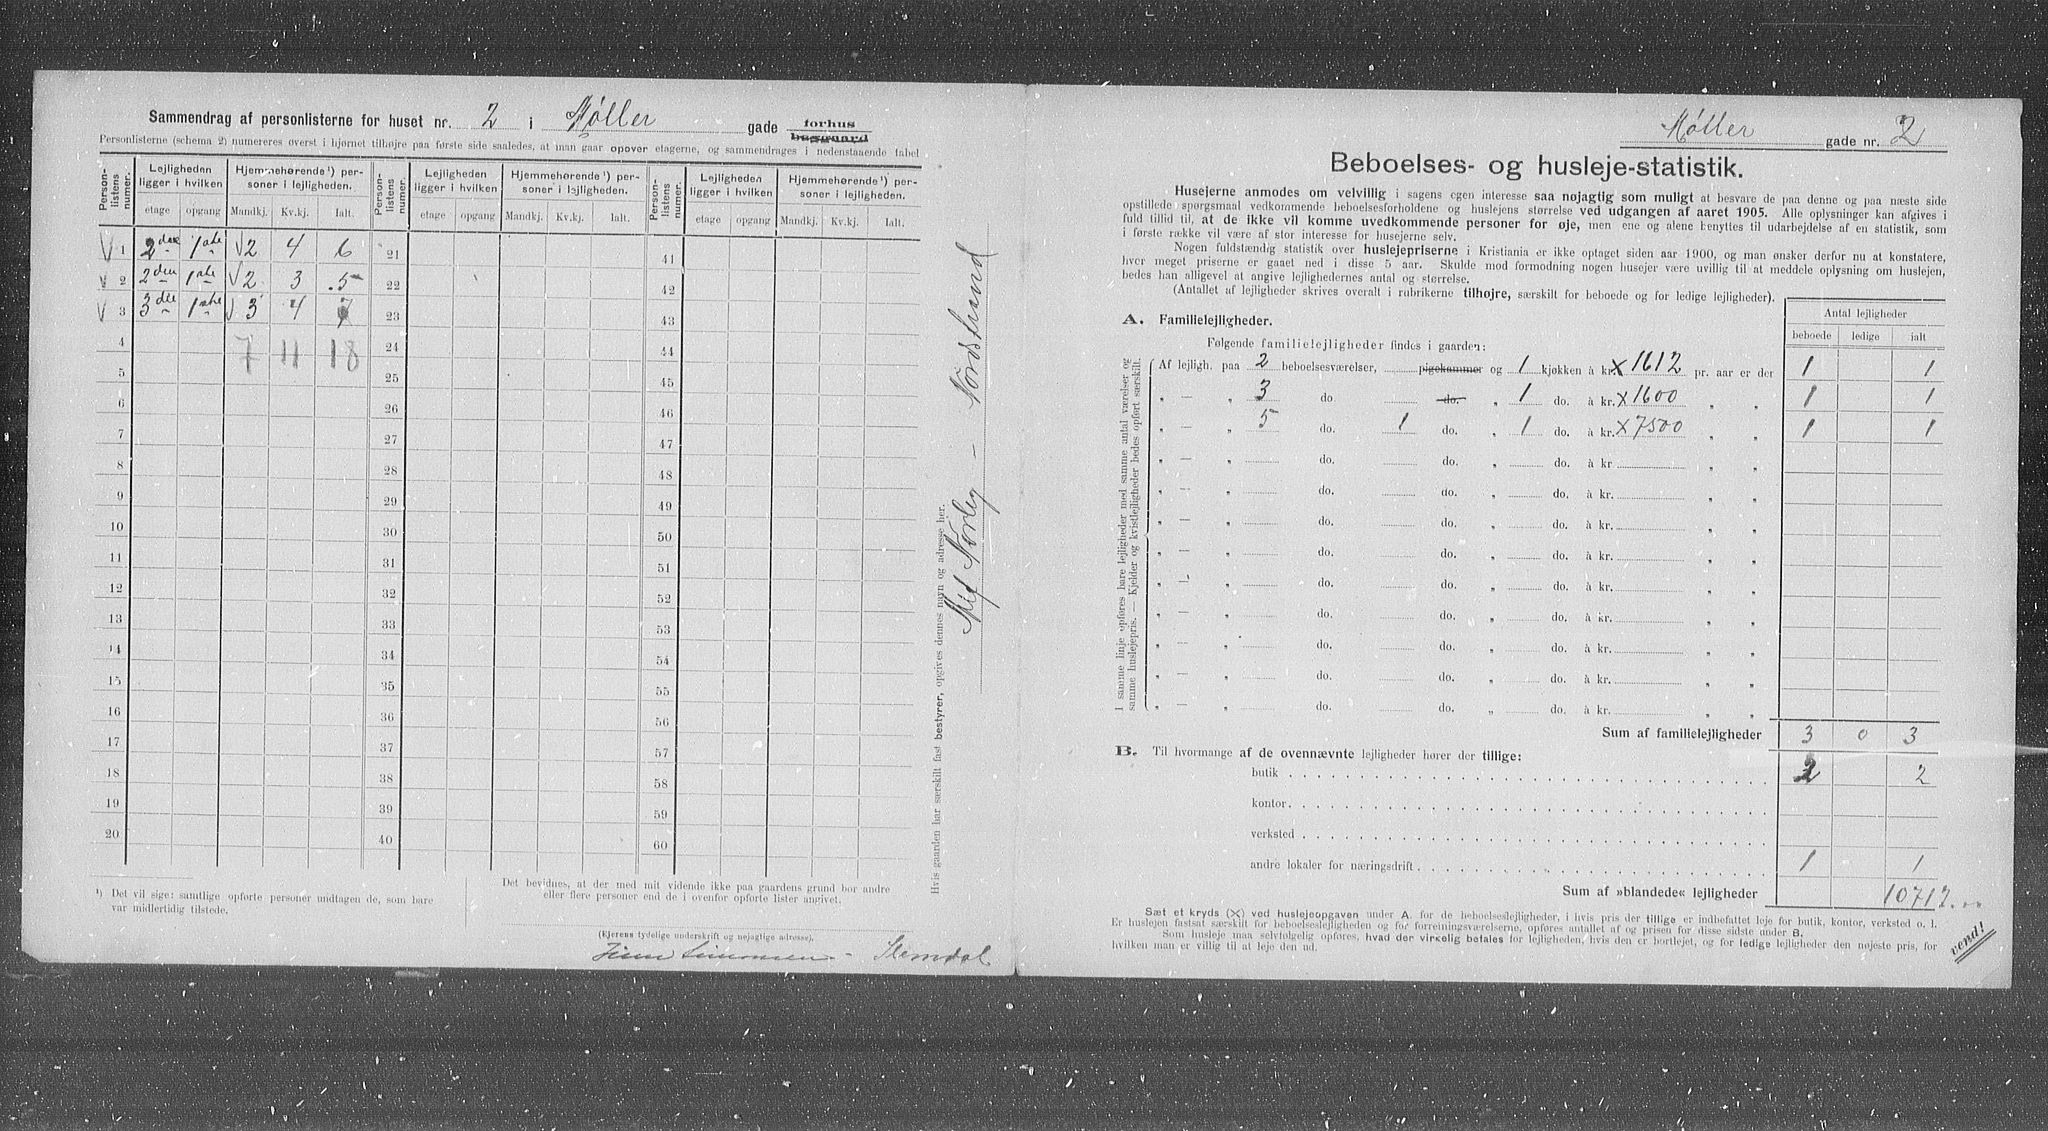 Sammendrag af personlisterne for huset nr. 2 i Møller gade forhus baggaard
Personlisterne (schema 2) numereres øverst i hjørnet tilhøjre paa første side saaledes, at man gaar opover etagerne, og sammendrages i nedenstaaende tabel
Person-listens numer. Lejligheden ligger i hvilken etage opgang Hjemmehørende¹) personer i lejligheden. Mandkj. Kv.kj. Ialt.
Person-listens numer. Lejligheden ligger i hvilken etage opgang Hjemmehørende¹) personer i lejligheden. Mandkj. Kv.kj. Ialt.
Person-listens numer. Lejligheden ligger i hvilken etage opgang Hjemmehørende¹) personer i lejligheden. Mandkj. Kv.kj. Ialt.
√ 1 2den 1ste √2 4 6 21 41
√ 2 2den 1ste √2 3 5 22 42
√ 3 3die 1ste √3 4 7 23 43
4 7 11 18 24 44
5 25 45
6 26 46
7 27 47
8 28 48
9 29 49
10 30 50
11 31 51
12 32 52
13 33 53
14 34 54
15 35 55
16 36 56
17 37 57
18 38 58
19 39 59
20 40 60
¹) Det vil sige: samtlige opførte personer undtagen de, som bare
var midlertidig tilstede.
Det bevidnes, at der med mit vidende ikke paa gaardens grund bor andre
eller flere personer end de i ovenfor opførte lister angivet.
(Ejerens tydelige underskrift og nøjagtige adresse).
Simonsen - Slemdal
Hvis gaarden har særskilt fast bestyrer, opgives dennes navn og adresse her.
Nørbeg - Nordstrand
Møller gade nr. 2
Beboelses- og husleje-statistik.
Husejerne anmodes om velvillig i sagens egen interesse saa nøjagtig som muligt at besvare de paa denne og paa næste side
opstillede spørgsmaal vedkommende beboelsesforholdene og huslejens størrelse ved udgangen af aaret 1905. Alle oplysninger kan afgives i
fuld tillid til, at de ikke vil komme uvedkommende personer for øje, men ene og alene benyttes til udarbejdelse af en statistik, som
i første række vil være af stor interesse for husejerne selv.
Nogen fuldstændig statistik over huslejepriserne i Kristiania er ikke optaget siden aar 1900, og man ønsker derfor nu at konstatere,
hvor meget priserne er gaaet ned i disse 5 aar. Skulde mod formodning nogen husejer være uvillig til at meddele oplysning om huslejen,
bedes han alligevel at angive lejlighedernes antal og størrelse.
(Antallet af lejligheder skrives overalt i rubrikerne tilhøjre, særskilt for beboede og for ledige lejligheder).
Antal lejligheder
beboede ledige ialt
A. Familielejligheder.
Følgende familielejligheder findes i gaarden:
I samme linje opføres bare lejligheder med samme antal værelser og
samme huslejepris. — Kjelder og kvistlejligheder bedes opført særskilt.
Af lejligh. paa 2 beboelsesværelser, pigekammer og 1 kjøkken à kr. X 1612 pr. aar er der 1 1
„ — „ 3 do. do. „ 1 do. à kr. X 1600 „ „ 1 1
„ — „ 5 do. 1 do. „ 1 do. à kr. X 7500 „ „ 1 1
„ — „ do. do. „ do. à kr. „ „
„ — „ do. do. „ do. à kr. „ „
„ — „ do. do. „ do. à kr. „ „
„ — „ do. do. „ do. à kr. „ „
„ — „ do. do. „ do. à kr. „ „
„ — „ do. do. „ do. à kr. „ „
„ — „ do. do. „ do. à kr. „ „
„ — „ do. do. „ do. à kr. „ „
„ — „ do. do. „ do. à kr. „ „
Sum af familielejligheder 3 0 3
B. Til hvormange af de ovennævnte lejligheder hører der tillige:
butik 2 2
kontor
verksted
andre lokaler for næringsdrift 1 1
Sum af »blandede« lejligheder 10712.
Sæt et kryds (X) ved huslejeopgaven under A. for de beboelseslejligheder, i hvis pris der tillige er indbefattet leje for butik, kontor, verksted o. l.
Er huslejen fastsat særskilt for beboelseslejligheden og for forretningsværelserne, opføres antallet af og prisen for disse sidste under B.
Som husleje maa selvfølgelig opføres, hvad der virkelig betales for lejligheden, hvis den er bortlejet, og for ledige lejligheder den nøjeste pris, for
hvilken man er villig til at leje den ud.
vend!